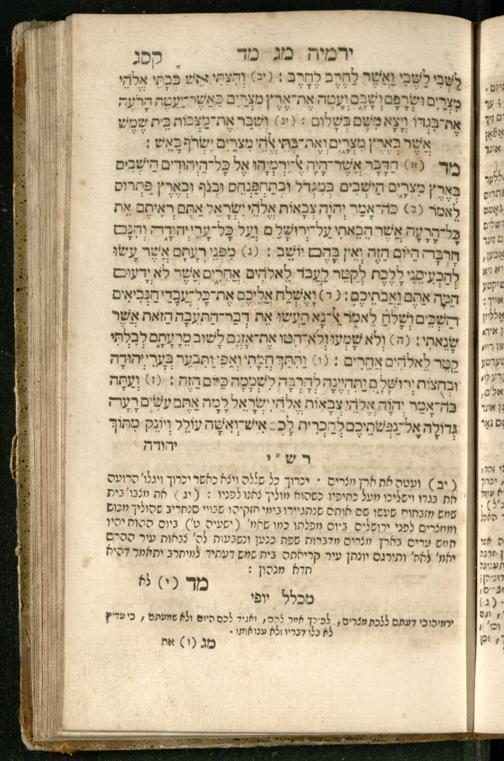 ירמיה מג מד קסג
לַשְּׁבִי לַשֶּׁבִי וַאֲשֶׁר לַחֶרֶב לֶחָרֶב : (יב) וְהִצַּתִּי אֵשׁ בְּבָתֵּי אֱלֹהֵי
מִצְרַיִם וּשְׂרָפָם וְשָׁבָם וְעָטָה אֶת־אֶרֶץ מִצְרַיִם כַּאֲשֶׁר־יַעְטֶה הָרֹעֶה
אֶת־בִּגְדוֹ וְיָצָא מִשָּׁם בְּשָׁלוֹם : (יג) וְשִׁבַּר אֶת־מַצְּבוֹת בֵּית שֶׁמֶשׁ
אֲשֶׁר בְּאֶרֶץ מִצְרָיִם וְאֶת־בָּתֵּי אֱלֹהֵי מִצְרַיִם יִשְׂרֹף בָּאֵשׁ :
מד (א) הַדָּבָר אֲשֶׁר־הָיָה אֶל־יִרְמְיָהוּ אֶל כָּל־הַיְּהוּדִים הַיֹּשְׁבִים
בְּאֶרֶץ מִצְרָיִם הַיֹּשְׁבִים בְּמִגְדֹּל וּבְתַחְפַּנְחֵס וּבְנֹף וּבְאֶרֶץ פַּתְרוֹס
לֵאמֹר (ב) כֹּה־אָמַר יְהוָֹה צְבָאוֹת אֱלֹהֵי יִשְׂרָאֵל אַתֶּם רְאִיתֶם אֵת
כָּל־הָרָעָה אֲשֶׁר הֵבֵאתִי עַל־יְרוּשָׁלִַם וְעַל כָּל־עָרֵי יְהוּדָה וְהִנָּם
חָרְבָּה הַיּוֹם הַזֶּה וְאֵין בָּהֶם יוֹשֵׁב : (ג) מִפְּנֵי רָעָתָם אֲשֶׁר עָשׂוּ
לְהַכְעִסֵנִי לָלֶכֶת לְקַטֵּר לַעֲבֹד לֵאלֹהִים אֲחֵרִים אֲשֶׁר לֹא יְדָעוּם
הֵמָּה אַתֶּם וַאֲבֹתֵיכֶם : (ד) וָאֶשְׁלַח אֲלֵיכֶם אֶת־כָּל־עֲבָדַי הַנְּבִיאִים
הַשְׁכֵּים וְשָׁלֹחַ לֵאמֹר אַל־נָא תַעֲשׂוּ אֵת דְּבַר־הַתֹּעֵבָה הַזֹּאת אֲשֶׁר
שָׂנֵאתִי : (ה) וְלֹא שָׁמְעוּ וְלֹא־הִטּוּ אֶת־אָזְנָם לָשׁוּב מֵרָעָתָם לְבִלְתִּי
קַטֵּר לֵאלֹהִים אֲחֵרִים : (ו) וַתִּתַּךְ חֲמָתִי וְאַפִּי וַתִּבְעַר בְּעָרֵי יְהוּדָה
וּבְחֻצוֹת יְרוּשָׁלִָם וַתִּהְיֶינָה לְחָרְבָּה לִשְׁמָמָה כַּיּוֹם הַזֶּה : (ז) וְעַתָּה
כֹּה־אָמַר יְהוָֹה אֱלֹהֵי צְבָאוֹת אֱלֹהֵי יִשְׂרָאֵל לָמָה אַתֶּם עֹשִׂים רָעָה
גְדוֹלָה אֶל־נַפְשֹׁתֵיכֶם לְהַכְרִית לָכֶם אִישׁ־וְאִשָּׁה עוֹלֵל וְיוֹנֵק מִתּוֹךְ
יהודה
רש"י
(יב) ועטה את ארץ מצרים · יכרוך כל שללה ויצא כאשר יכרוך ויגלו' הרועה
את בגדו וישליכו מעל כתיפיו כשהוא מוליך צאנו לפניו : (יג) את מצבו' בית
שמש מזבחות שעשו שם אותם שנתגיירו בימי חזקיהו שבויי סנחריב שהוליך מכוש
וממצרים לפני ירושלים ביום מפלתו כמו שאמ' (ישעיה ט') ביום ההוא יהיו
חמש ערים בארץ מצרים מדברות שפת כנען ונשבעות לה' צבאות עיר ההרס
יאמ' לאח' ותירגם יונתן עיר קריאתה בית שמש דעתיד למיחרב יתאמר דהיא
חדא מנהון :
מד (י) לא
מכלל יופי
דעתם ללכת מצרים, לפיכך אמר להם, ואגיד לכם היום ולא שמעתם, כי עדיין
לא כלו דבריו ולא ענואותו ·
מג (ו) את